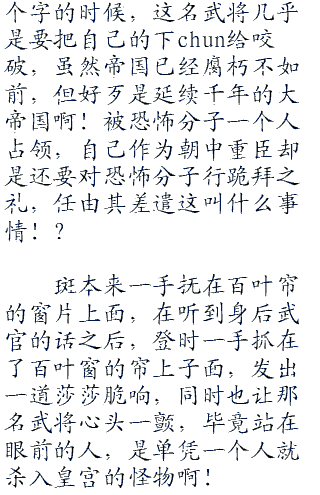 个字的时候，这名武将几乎
是要把自己的下chun给咬
破，虽然帝国已经腐朽不如
前，但好歹是延续千年的大
帝国啊！被恐怖分子一个人
占领，自己作为朝中重臣却
是还要对恐怖分子行跪拜之
礼，任由其差遣这叫什么事
情！？
斑本来一手抚在百叶帘
的窗片上面，在听到身后武
官的话之后，登时一手抓在
了百叶窗的帘上子面，发出
一道莎莎脆响，同时也让那
名武将心头一颤，毕竟站在
眼前的人，是单凭一个人就
杀入皇宫的怪物啊！